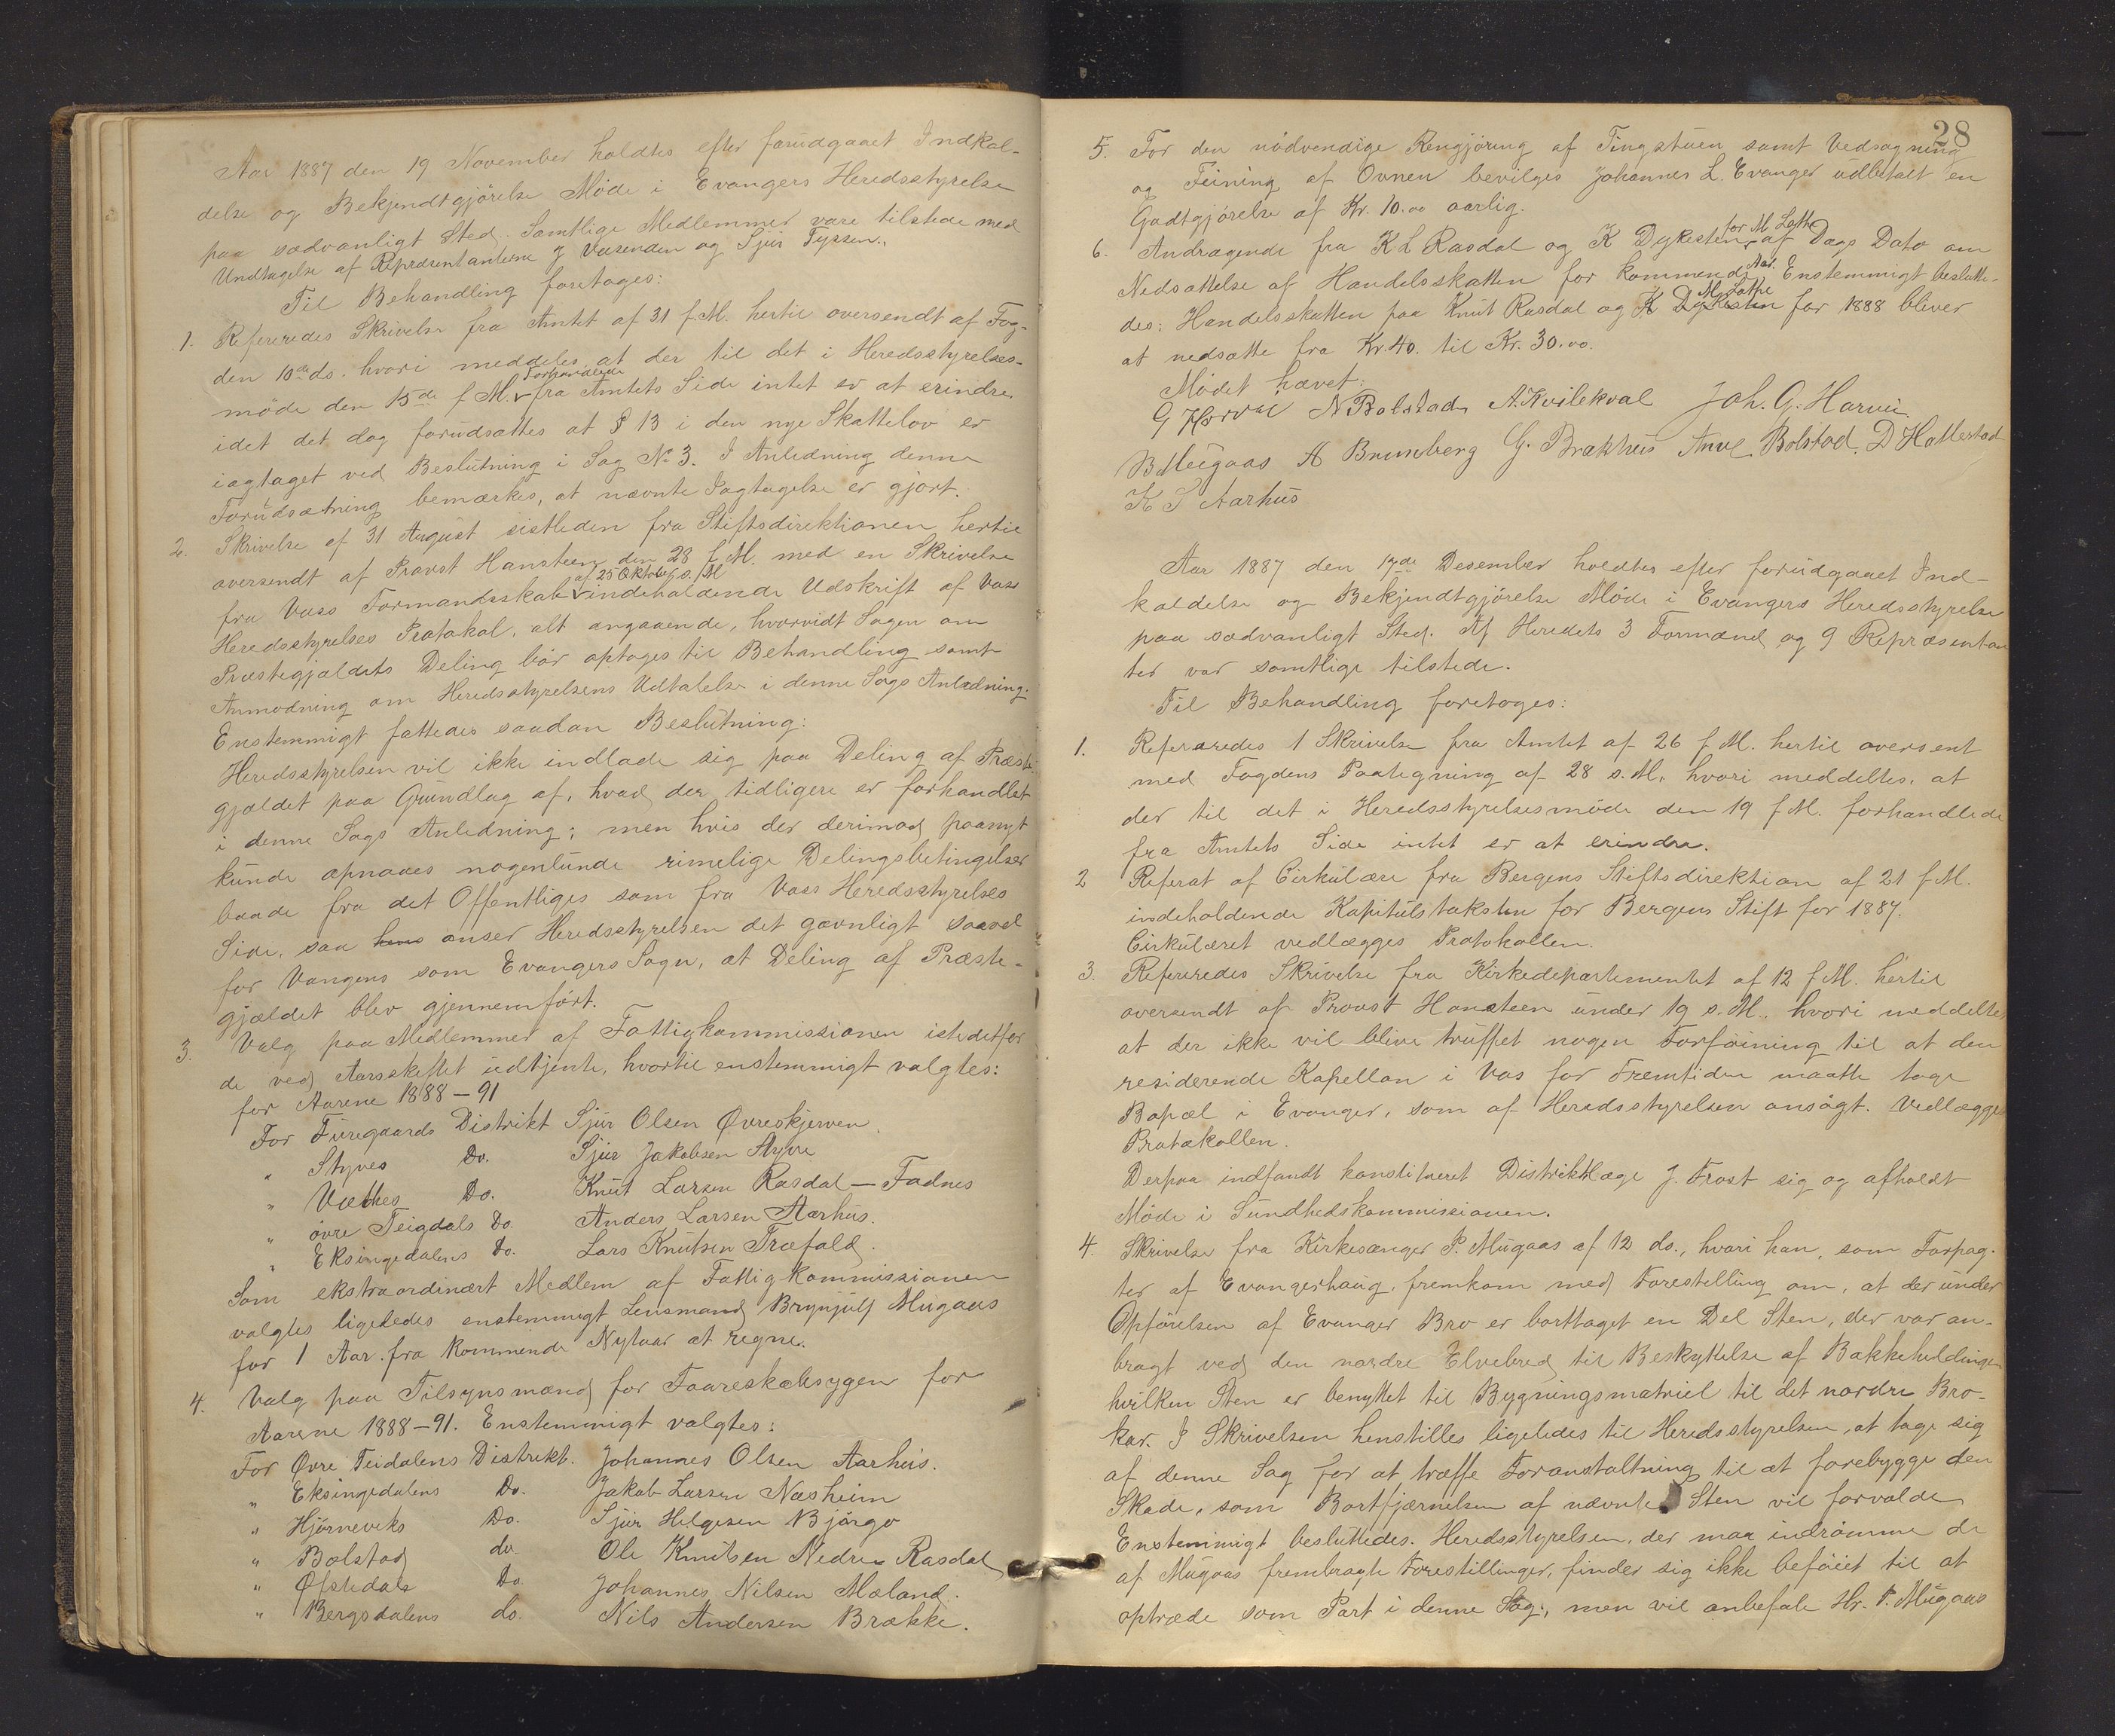 Aar 1887 den 19 November holdtes efter forudgaaet Indkal-
delse og Bekjendtgjörelse Möde i Evangers Heredsstyrelse
paa sædvanligt Sted. Samtlige Medlemmer vare tilstede med
Undtagelse af Repræsentanterne J Vasenden og Sjur Tyssen.
Til Behandling foretages:
1. Refereredes Skrivelse fra Amtet af 31 f.M. hertil oversendt af Fog-
den 10de ds. hvori meddeles at der til det i Heredsstyrelses-
möde den 15de f.M. Forhandlede fra Amtets Side intet er at erindre,
idet det dog forudsættes at § 13 i den nye Skattelov er
iagtaget ved Beslutning i Sag No 3. I Anledning denne
Forudsætning bemærkes, at nævnte Iagtagelse er gjort.
2. Skrivelse af 31 August sistleden fra Stiftsdirektionen hertil
oversendt af Provst Hansteen den 28 f.M. med en Skrivelse
fra Voss Formandsskab af 25 Oktober s./M indeholdende Udskrift af Voss
Heredsstyrelses Protokol, alt angaaende, hvorvidt Sagen om
Præstegjældets Deling bör optages til Behandling samt
Anmodning om Heredsstyrelsens Udtalelse i denne Sags Anledning.
Enstemmigt fattedes saadan Beslutning:
Heredsstyrelsen vil ikke indlade sig paa Deling af Præste
gjældet paa Grundlag af, hvad der tidligere er forhandlet
i denne Sags Anledning; men hvis der derimod paanyt
kunde opnaaes nogenlunde rimelige Delingsbetingelser
baade fra det Offentliges som fra Voss Heredsstyrelses
Side, saa anser Heredsstyrelsen det gavnligt saavel
for Vangens som Evangers Sogn, at Deling af Præste-
gjældet blev gjennemfört.
3. Valg paa Medlemmer af Fattigkommissionen istedetfor
de ved Aarsskiftet udtjente, hvortil enstemmigt valgtes:
for Aarene 1888-91
For Furegaards Distrikt Sjur Olsen Øvreskjerven.
" Styves Do. Sjur Jakobsen Styve
" Væthes Do. Knut Larsen Rasdal - Fadnes
" övre Teigdals Do. Anders Larsen Aarhus.
" Eksingedalens Do. Lars Knutsen Træfald.
Som ekstraordinært Medlem af Fattigkommissionen
valgtes ligeledes enstemmigt Lensmand Brynjulf Mugaas
for 1 Aar fra Kommende Nytaar at regne.
4. Valg paa Tilsynsmænd for Faareskabsygen for
Aarene 1888-91. Enstemmigt valgtes:
For Øvre Teidalens Distrikt. Johannes Olsen Aarhus.
" Eksingedalens Do. Jakob Larsen Næsheim
" Hjörneviks Do. Sjur Helgesen Björgo
" Bolstad do. Ole Knutsen Nedre Rasdal
" Øfstedals Do. Johannes Nilsen Mæland.
" Bergsdalens do. Nils Andersen Brække.
28
5. For den nödvendige Rengjöring af Tingstuen samt Vedsagning
og Feining af Ovnen bevilges Johannes L. Evanger udbetalt en
Godtgjörelse af Kr. 10.00 aarlig.
6. Andragende fra K L Rasdal og K Dykesten for M Lothe af Dags Dato om
Nedsættelse af Handelsskatten for kommende Aar. Enstemmigt beslutte-
des: Handelsskatten paa Knut Rasdal og K Dykesten M Lothe for 1888 bliver
at nedsætte fra Kr. 40. til Kr. 30.00.
Mödet hævet.
G Horvei N Bolstad A. Kvilekval Joh. G. Horvei
B Mugaas A Brunborg G. Brækhus Bolstad D Hallestad
K S Aarhus
Aar 1887 den 17de Desember holdtes efter forudgaaet Ind-
kaldelse og Bekjendtgjörelse Möde i Evangers Heredsstyrelse
paa sædvanligt Sted. Af Heredets 3 Formænd og 9 Repræsentan
ter var samtlige tilstede.
Til Behandling foretoges:
1. Refereredes 1 Skrivelse fra Amtet af 26 f.M. hertil oversent
med Fogdens Paategning af 28 s.M. hvori meddeltes, at
der til det i Heredsstyrelsesmöde den 19 f.M. forhandlede
fra Amtets Side intet er at erindre.
2 Referat af Cirkulære fra Bergens Stiftsdirektion af 21 f.M.
indeholdende Kapitulstaksten for Bergens Stift for 1887.
Cirkulæret vedlægges Protokollen.
3. Refereredes Skrivelse fra Kirkedepartementet af 12 f.M. hertil
oversendt af Provst Hansteen under 19 s.M., hvori meddeltes
at der ikke vil blive truffet nogen Forföining til at den
residerende Kapellan i Vos for Fremtiden maatte tage
Bopæl i Evanger, som af Heredsstyrelsen ansögt. Vedlægges
Protokollen.
Derpaa indfandt konstitueret Distriktslæge J. Frost sig og afholdt
Möde i Sundhedskommissionen.
4. Skrivelse fra Kirkesanger P. Mugaas af 12 ds., hvori han, som Forpag-
ter af Evangerhaug, fremkom med Forestelling om, at der under
Opförelsen af Evanger Bro er borttaget en Del Sten, der var an-
bragt ved den nordre Elvebred til Beskyttelse af Bakkeheldingen
hvilken Sten er benyttet til Bygningsmatriel til det nordre Bro-
kar. I Skrivelsen henstilles ligeledes til Heredsstyrelsen, at tage sig
af denne Sag for at træffe Foranstaltning til at forebygge den
Skade, som Bortfjærnelsen af nævnte Sten vil forvolde
Enstemmigt besluttedes. Heredsstyrelsen, der maa indrömme de
af Mugaas frembragte Forestillinger, finder sig ikke beföiet til at
optræde som Part i denne Sag, men vil anbefale Hr. P. Mugaas